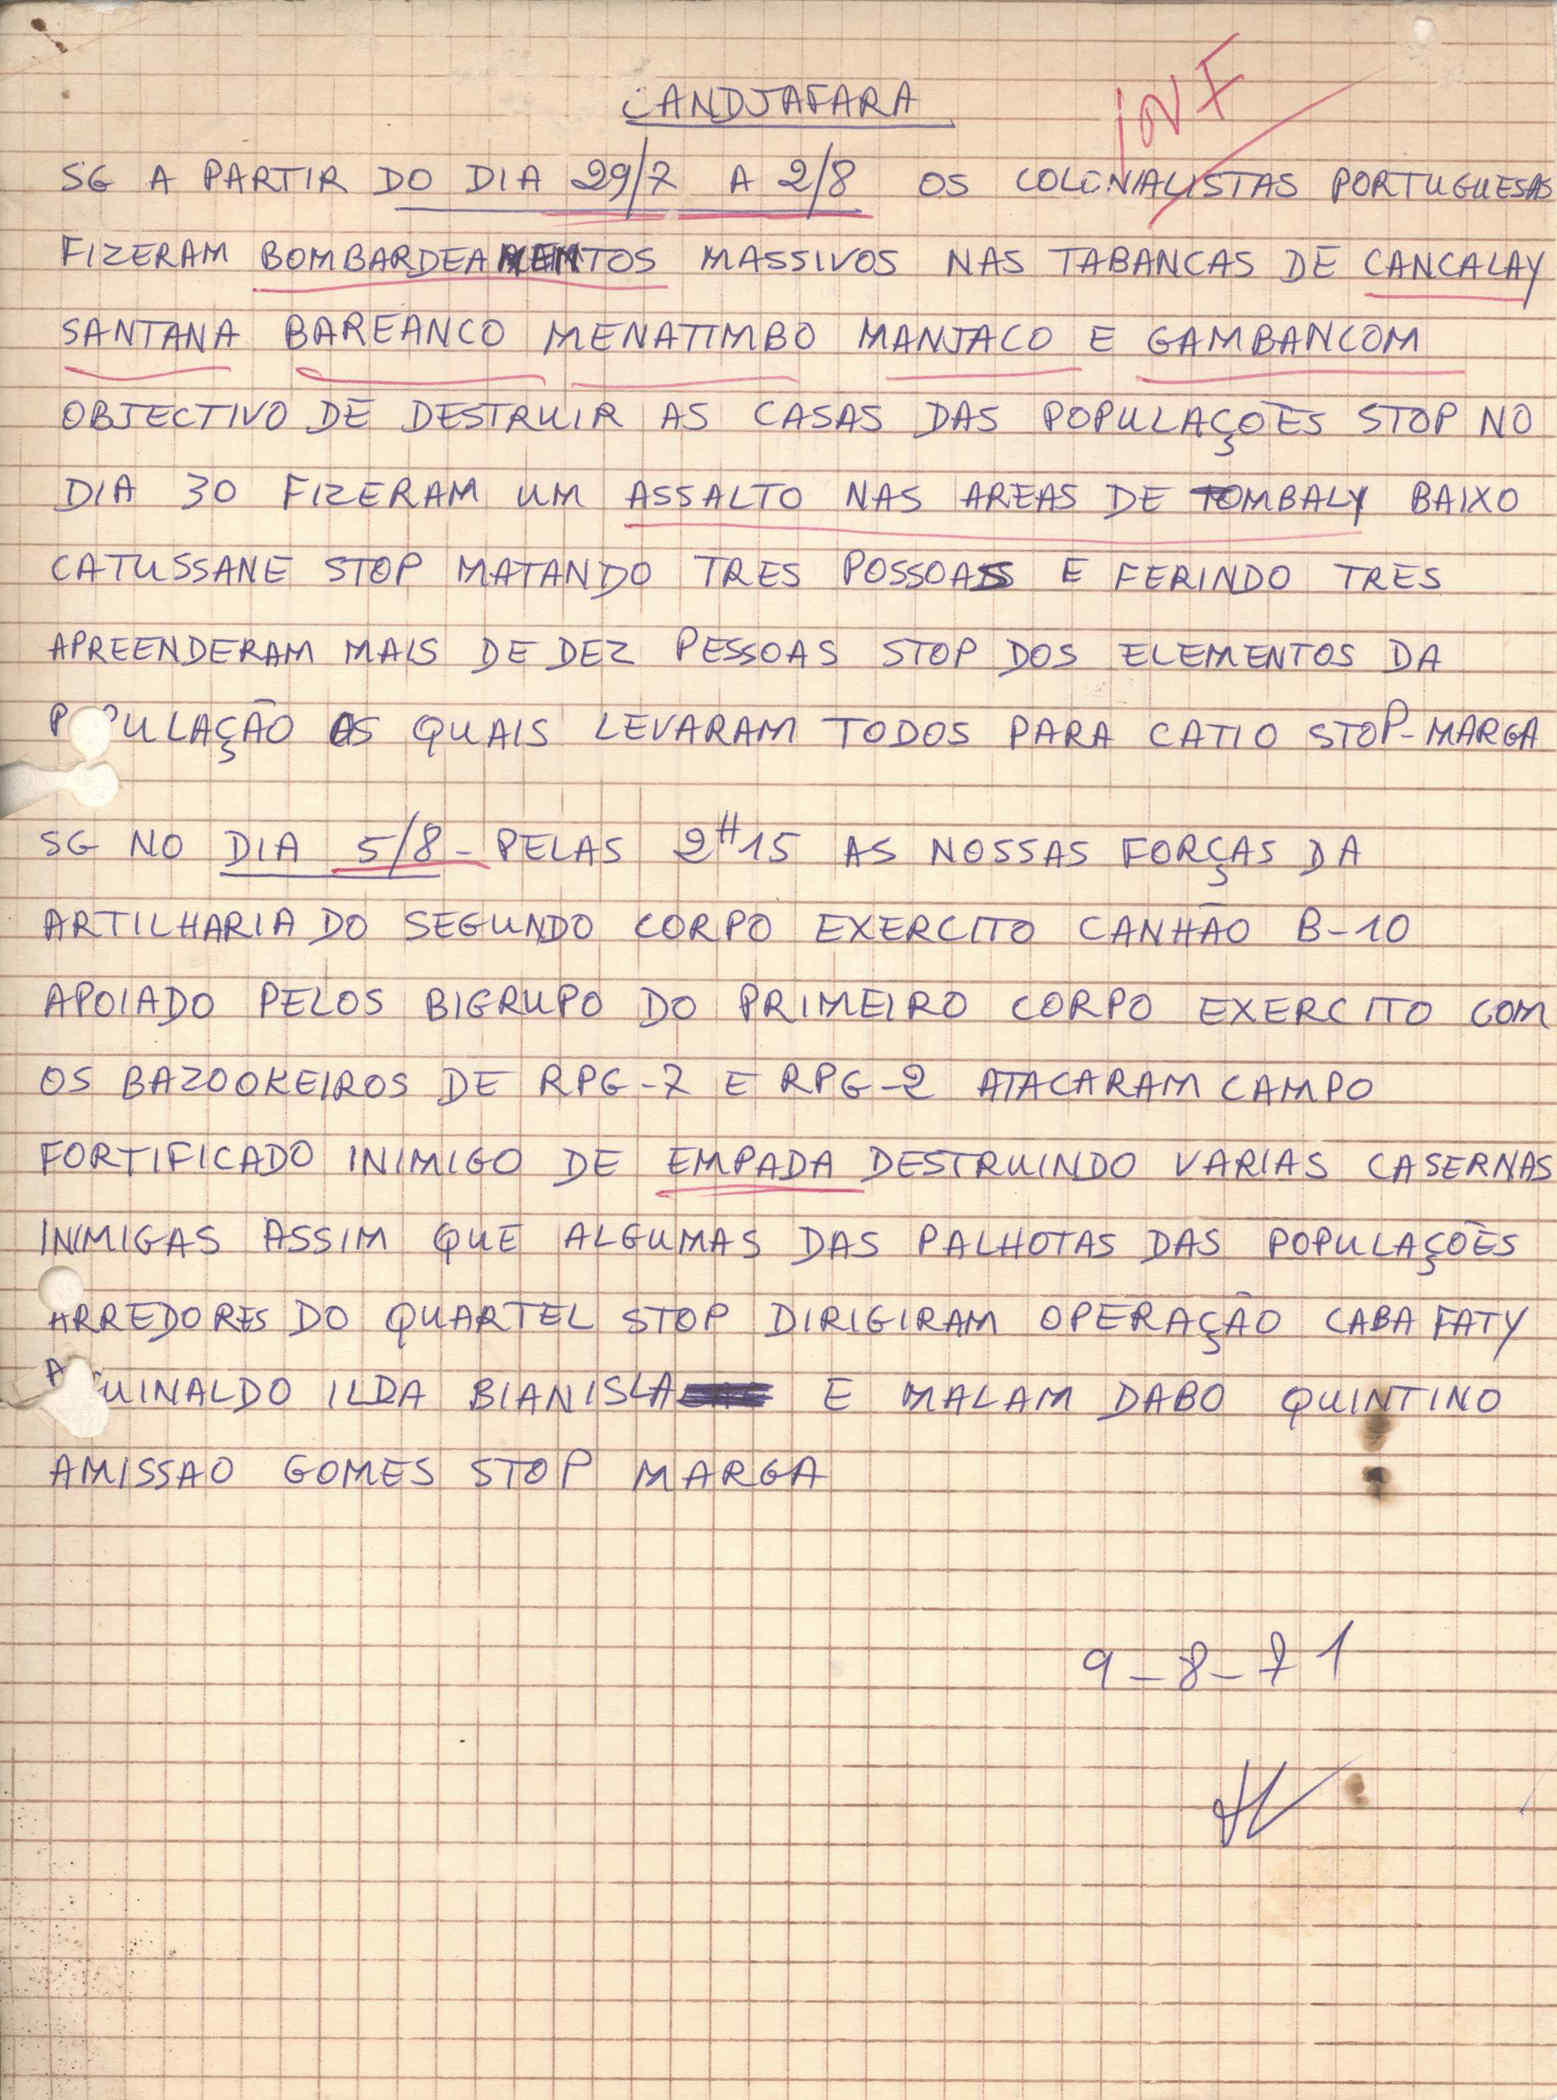 CANDJAFARA
INF
SG A PARTIR DO DIA 29/7 A 2/8 OS COLONIALISTAS PORTUGUESAS
FIZERAM BOMBARDEAMENTOS MASSIVOS NAS TABANCAS DE CANCALAY
SANTANA BAREANCO MENATIMBO MANJACO E GAMBANCOM
OBJECTIVO DE DESTRUIR AS CASAS DAS POPULAÇÕES STOP NO
DIA 30 FIZERAM UM ASSALTO NAS AREAS DE TOMBALY BAIXO
CATUSSANE STOP MATANDO TRES POSSOAS E FERINDO TRES
APREENDERAM MAIS DE DEZ PESSOAS STOP DOS ELEMENTOS DA
POPULAÇÃO OS QUAIS LEVARAM TODOS PARA CATIO STOP-MARGA
SG NO DIA 5/8 - PELAS 2H15 AS NOSSAS FORÇAS DA
ARTILHARIA DO SEGUNDO CORPO EXERCITO CANHÃO B-10
APOIADO PELOS BIGRUPO DO PRIMEIRO CORPO EXERCITO COM
OS BAZOOKEIROS DE RPG-7 E RPG-2 ATACARAM CAMPO
FORTIFICADO INIMIGO DE EMPADA DESTRUINDO VARIAS CASERNAS
INIMIGAS ASSIM QUE ALGUMAS DAS PALHOTAS DAS POPULAÇÕES
ARREDORES DO QUARTEL STOP DIRIGIRAM OPERAÇÃO CABA FATY
AGUINALDO ILDA BIANISLA E MALAM DABO QUINTINO
AMISSAO GOMES STOP MARGA
9-8-71